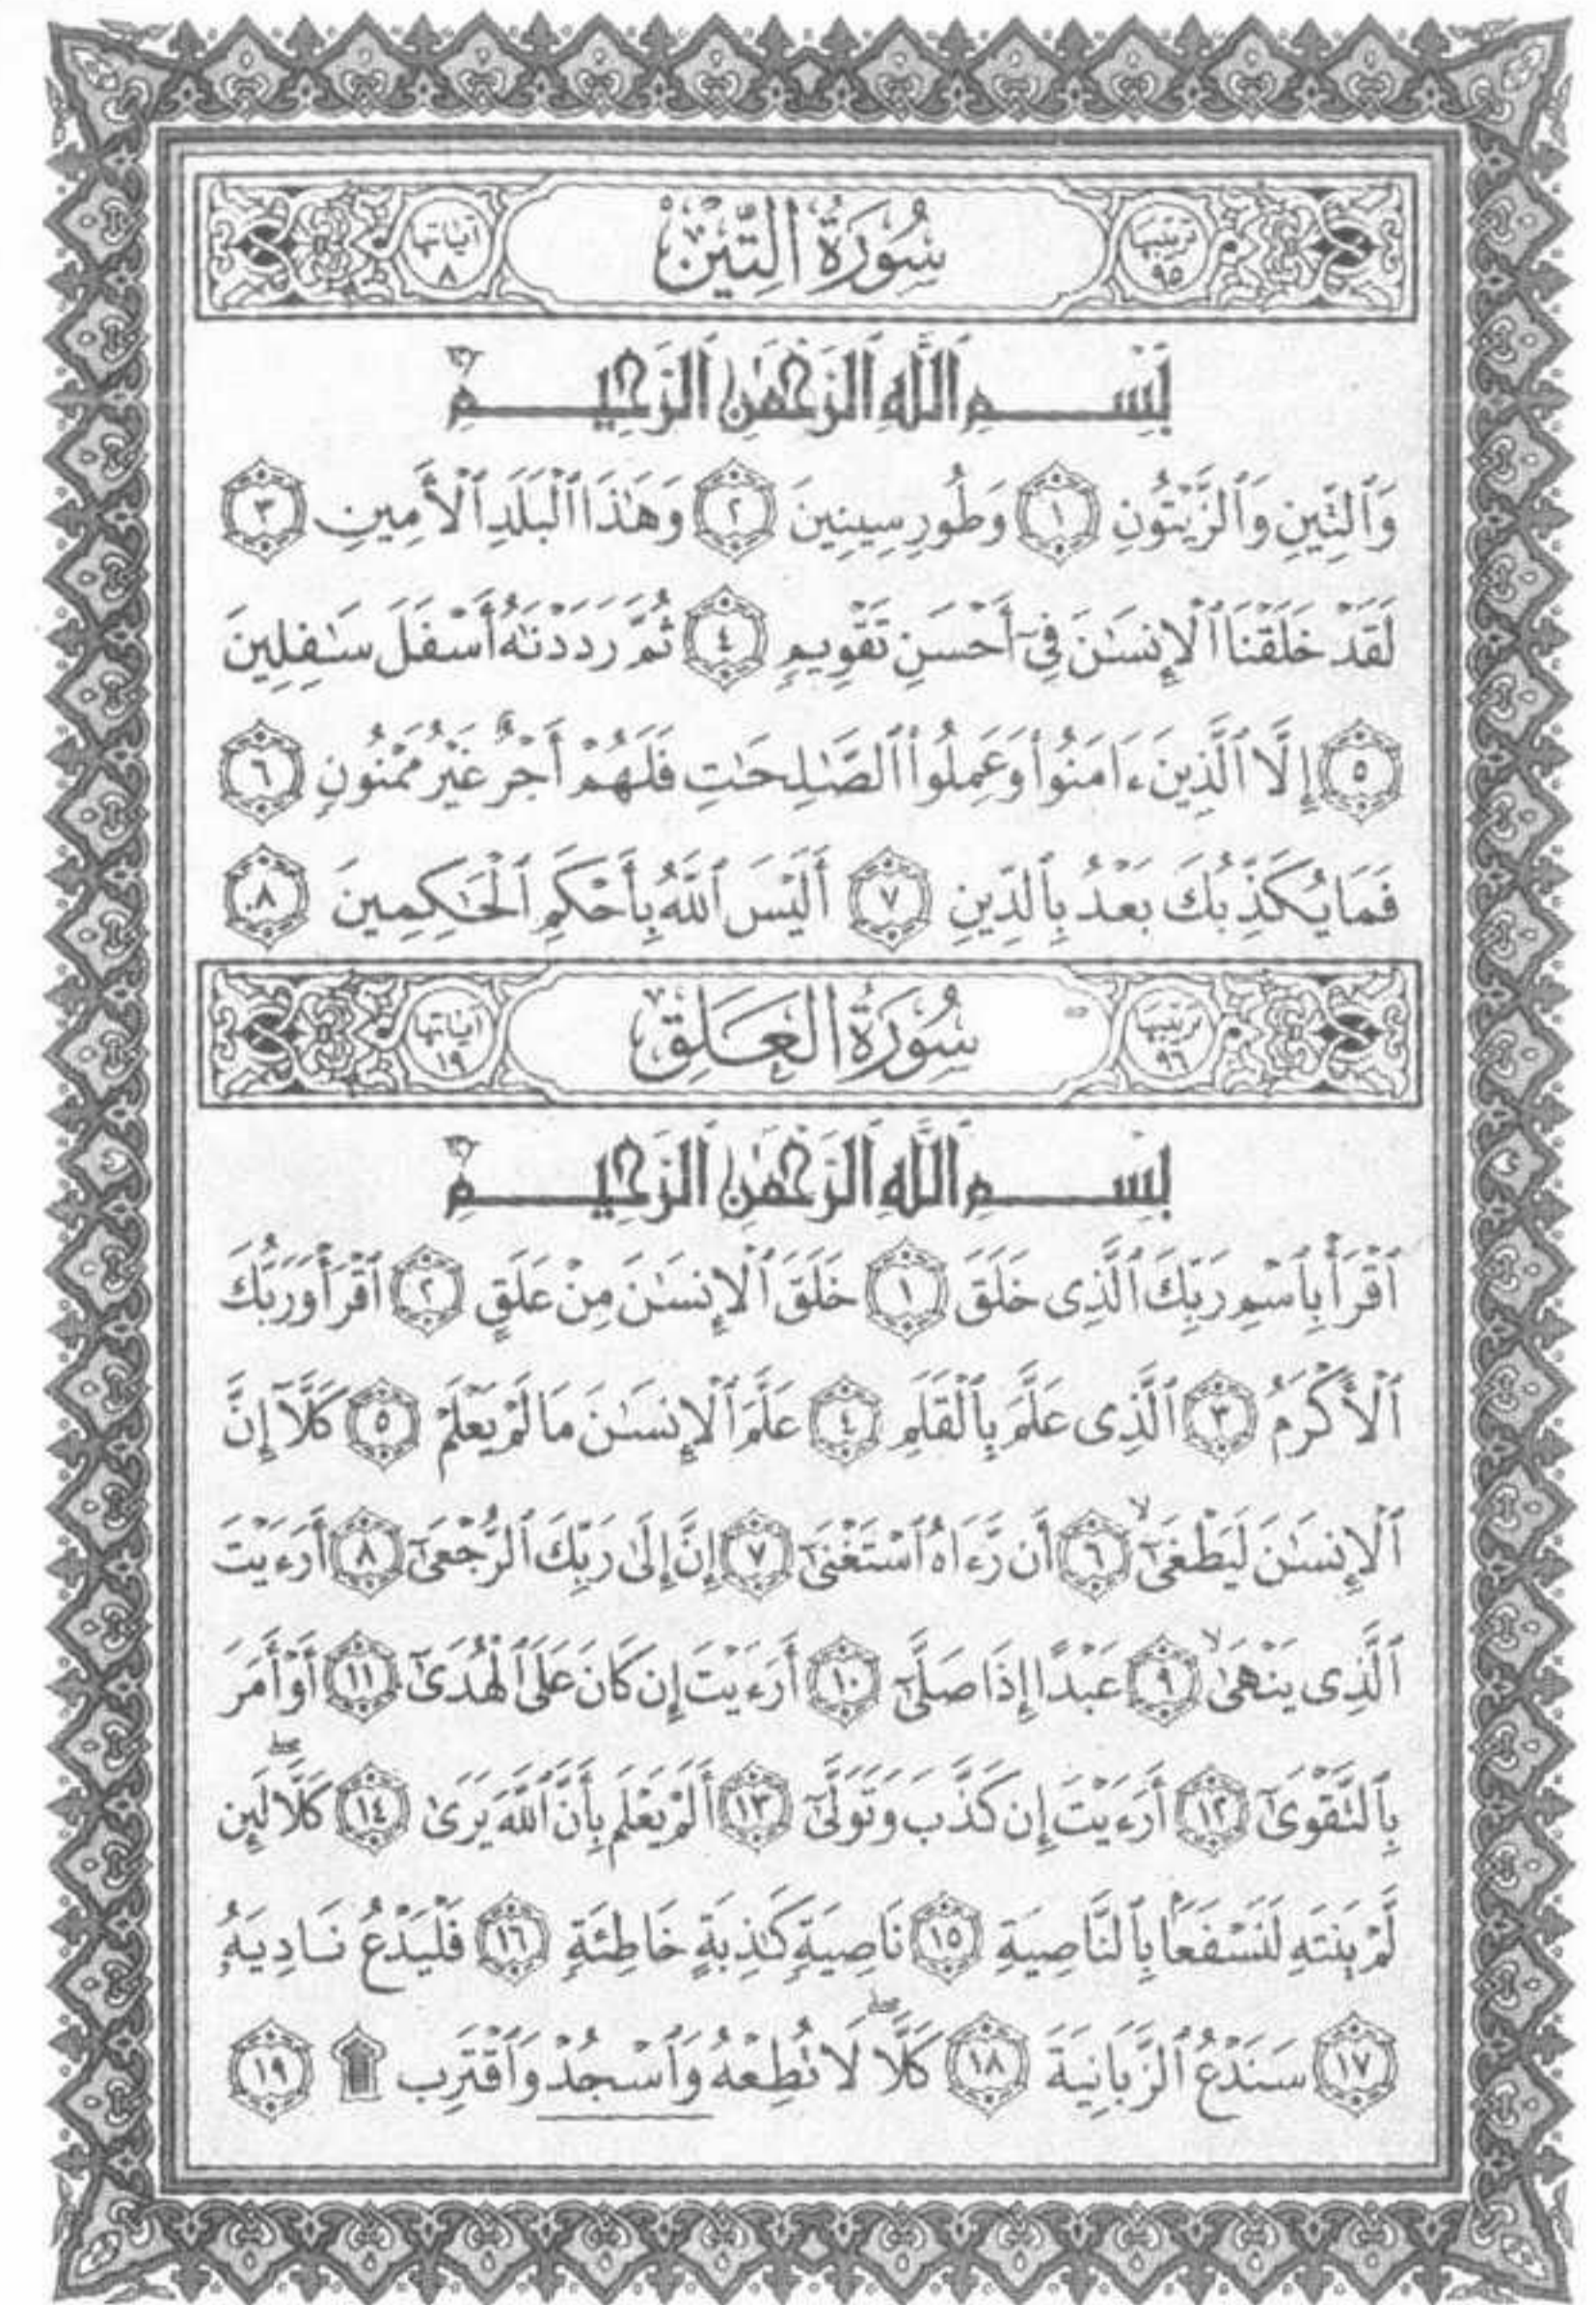 ترتيبها ٩٥ سُورَةُ التِّينِ آياتها ٨
بِسْمِ ٱللَّهِ ٱلرَّحْمَٰنِ ٱلرَّحِيمِ
وَٱلتِّينِ وَٱلزَّيْتُونِ ١ وَطُورِ سِينِينَ ٢ وَهَٰذَا ٱلْبَلَدِ ٱلْأَمِينِ ٣
لَقَدْ خَلَقْنَا ٱلْإِنسَٰنَ فِىٓ أَحْسَنِ تَقْوِيمٍ ٤ ثُمَّ رَدَدْنَٰهُ أَسْفَلَ سَٰفِلِينَ
٥ إِلَّا ٱلَّذِينَ ءَامَنُوا۟ وَعَمِلُوا۟ ٱلصَّٰلِحَٰتِ فَلَهُمْ أَجْرٌ غَيْرُ مَمْنُونٍ ٦
فَمَا يُكَذِّبُكَ بَعْدُ بِٱلدِّينِ ٧ أَلَيْسَ ٱللَّهُ بِأَحْكَمِ ٱلْحَٰكِمِينَ ٨
ترتيبها ٩٦ سُورَةُ العَلَقِ آياتها ١٩
بِسْمِ ٱللَّهِ ٱلرَّحْمَٰنِ ٱلرَّحِيمِ
ٱقْرَأْ بِٱسْمِ رَبِّكَ ٱلَّذِى خَلَقَ ١ خَلَقَ ٱلْإِنسَٰنَ مِنْ عَلَقٍ ٢ ٱقْرَأْ وَرَبُّكَ
ٱلْأَكْرَمُ ٣ ٱلَّذِى عَلَّمَ بِٱلْقَلَمِ ٤ عَلَّمَ ٱلْإِنسَٰنَ مَا لَمْ يَعْلَمْ ٥ كَلَّآ إِنَّ
ٱلْإِنسَٰنَ لَيَطْغَىٰٓ ۙ ٦ أَن رَّءَاهُ ٱسْتَغْنَىٰٓ ٧ إِنَّ إِلَىٰ رَبِّكَ ٱلرُّجْعَىٰٓ ٨ أَرَءَيْتَ
ٱلَّذِى يَنْهَىٰ ۙ ٩ عَبْدًا إِذَا صَلَّىٰٓ ١٠ أَرَءَيْتَ إِن كَانَ عَلَى ٱلْهُدَىٰٓ ١١ أَوْ أَمَرَ
بِٱلتَّقْوَىٰٓ ١٢ أَرَءَيْتَ إِن كَذَّبَ وَتَوَلَّىٰٓ ١٣ أَلَمْ يَعْلَم بِأَنَّ ٱللَّهَ يَرَىٰ ١٤ كَلَّا ۖ لَئِن
لَّمْ يَنتَهِ لَنَسْفَعًۢا بِٱلنَّاصِيَةِ ١٥ نَاصِيَةٍ كَٰذِبَةٍ خَاطِئَةٍ ١٦ فَلْيَدْعُ نَادِيَهُۥ
١٧ سَنَدْعُ ٱلزَّبَانِيَةَ ١٨ كَلَّا ۖ لَا تُطِعْهُ وَٱسْجُدْ وَٱقْتَرِب ۩ ١٩